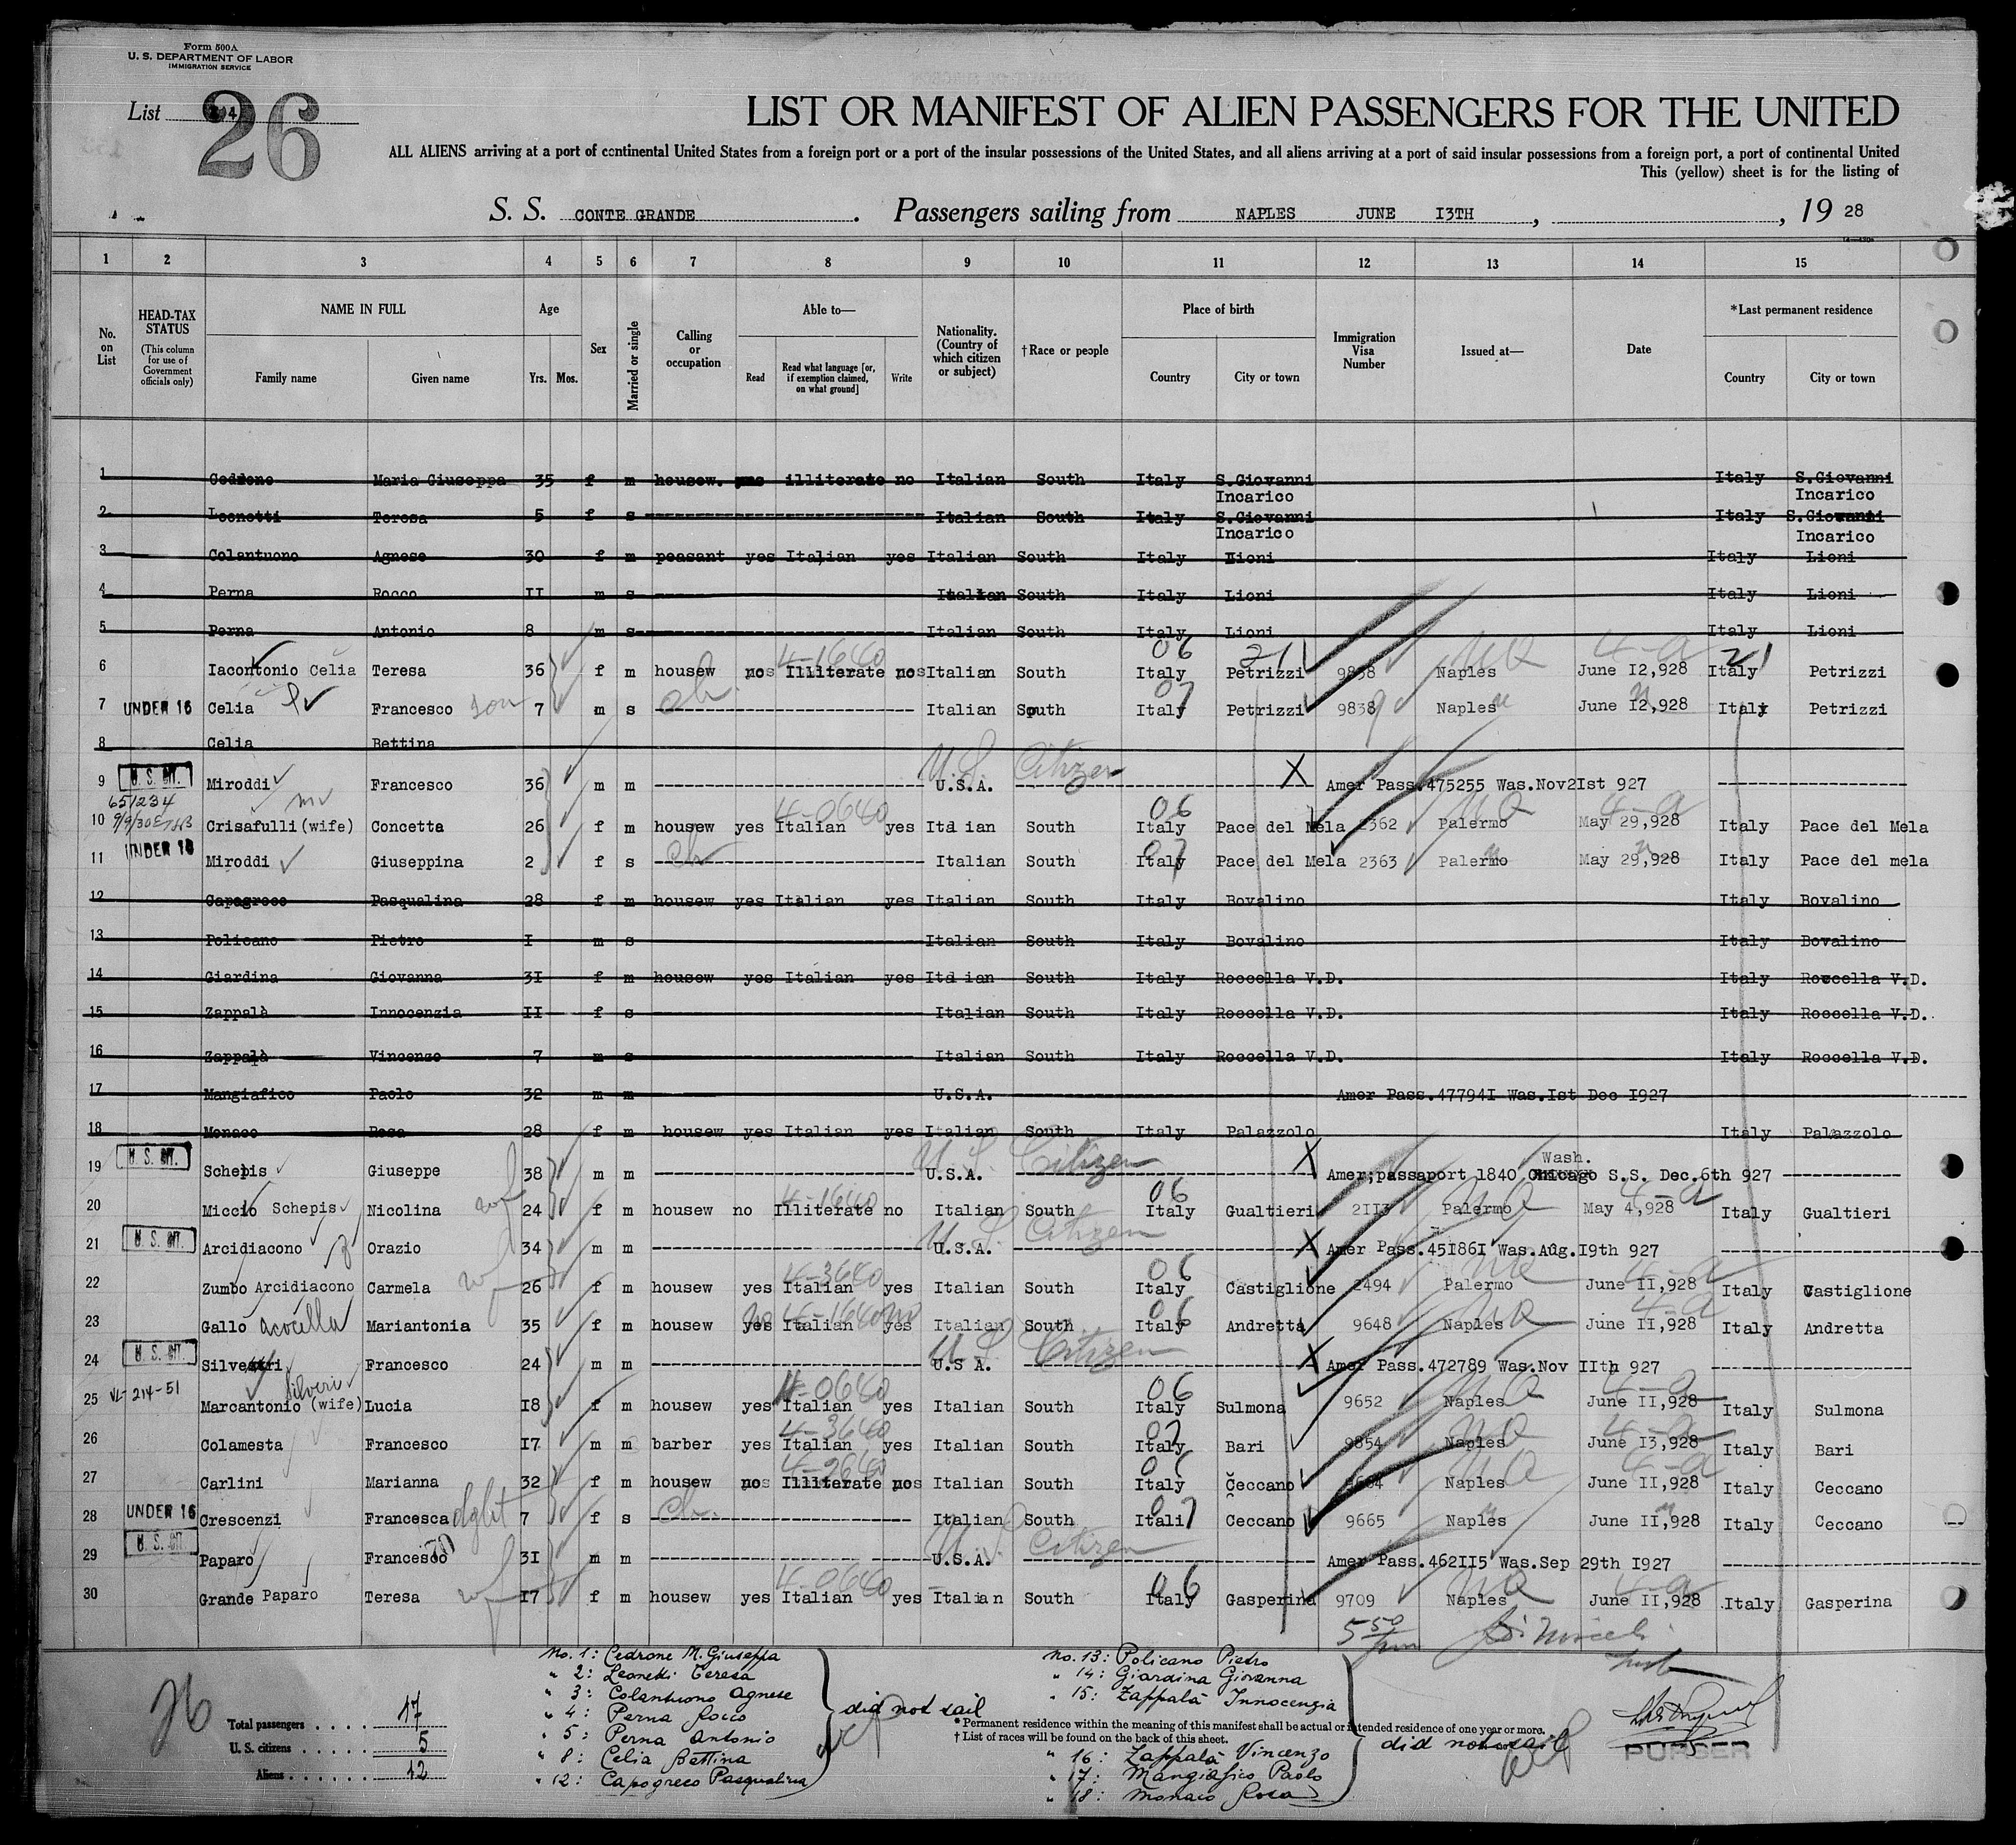 Form 500A
U. S. DEPARTMENT OF LABOR
IMMIGRATION SERVICE
List 26
LIST OR MANIFEST OF ALIEN PASSENGERS FOR THE UNITED
ALL ALIENS arriving at a port of continental United States from a foreign port or a port of the insular possessions of the United States, and all aliens arriving at a port of said insular possessions from a foreign port, a port of continental United
This (yellow) sheet is for the listing of
S. S. CONTE GRANDE. Passengers sailing from NAPLES JUNE I3TH, , 19 28
1 2 3 4 5 6 7 8 9 10 11 12 13 14 15
No. on List
HEAD-TAX STATUS (This column for use of Government officials only)
NAME IN FULL Family name Given name
Age Yrs. Mos.
Sex
Married or single
Calling or occupation
Able to— Read Read what language [or, if exemption claimed, on what ground] Write
Nationality. (Country of which citizen or subject)
†Race or people
Place of birth Country City or town
Immigration Visa Number
Issued at—
Date
*Last permanent residence Country City or town
1 Cedrone Maria Giuseppa 35 f m housew. illiterate no Italian South Italy S.Giovanni Incarico Italy S.Giovanni Incarico
2 Leonetti Teresa 5 f s Italian South Italy S.Giovanni Incarico Italy S.Giovanni Incarico
3 Colantuono Agnese 30 f m peasant yes Italian yes Italian South Italy Lioni Italy Lioni
4 Perna Rocco II m s Italian South Italy Lioni Italy Lioni
5 Perna Antonio 8 m s Italian South Italy Lioni Italy Lioni
6 Iacontonio Celia Teresa 36 f m housew no Illiterate no Italian South Italy Petrizzi 9838 Naples June I2,928 Italy Petrizzi
7 UNDER 16 Celia Francesco son 7 m s ch Italian South Italy Petrizzi 9839 Naples June I2,928 Italy Petrizzi
8 Celia Bettina
9 U. S. CIT. Miroddi Francesco 36 m m U.S.A. U.S. Citizen X Amer Pass.475255 Was.Nov2Ist 927
651234
10 Crisafulli (wife) Concetta 26 f m housew yes Italian 4-0640 yes Italian South 06 Italy Pace del Mela 2362 Palermo May 29,928 Italy Pace del Mela
11 UNDER 16 Miroddi Giuseppina 2 f s ch Italian South 07 Italy Pace del Mela 2363 Palermo May 29,928 Italy Pace del mela
12 Capogreco Pasqualina 28 f m housew yes Italian yes Italian South Italy Bovalino Italy Bovalino
13 Policano Pietro I m s Italian South Italy Bovalino Italy Bovalino
14 Giardina Giovanna 3I f m housew yes Italian yes Italian South Italy Roccella V.D. Italy Roccella V.D.
15 Zappalà Innocenzia II f s Italian South Italy Roccella V.D. Italy Roccella V.D.
16 Zappalà Vincenzo 7 m s Italian South Italy Roccella V.D. Italy Roccella V.D.
17 Mangiafico Paolo 32 m m U.S.A. Amer Pass.47794I Was.Ist Dec I927
18 Monaco Rosa 28 f m housew yes Italian yes Italian South Italy Palazzolo Italy Palazzolo
19 U. S. CIT. Schepis Giuseppe 38 m m U.S.A. U.S. Citizen X Amer;passaport 1840 Chicago Wash. S.S. Dec.6th 927
20 Miccio Schepis Nicolina wf 24 f m housew no Illiterate 4-1640 no Italian South 06 Italy Gualtieri 2II3 Palermo May 4,928 Italy Gualtieri
21 U. S. CIT. Arcidiacono Orazio 34 m m U.S.A. U.S. Citizen X Amer Pass.45I86I Was.Aug.I9th 927
22 Zumbo Arcidiacono Carmela wf 26 f m housew yes Italian 4-3640 yes Italian South 06 Italy Castiglione 2494 Palermo June II,928 Italy Castiglione
23 Gallo Acocella Mariantonia 35 f m housew yes no Italian 4-1640 yes no Italian South 06 Italy Andretta 9648 Naples June II,928 Italy Andretta
24 U. S. CIT. Silvestri Francesco 24 m m U.S A. U.S. Citizen X Amer Pass.472789 Was.Nov IIth 927
25 VL-214-51 Marcantonio (wife) Silveri Lucia I8 f m housew yes Italian 4-0640 yes Italian South 06 Italy Sulmona 9652 Naples June II,928 Italy Sulmona
26 Colamesta Francesco I7 m m barber yes Italian 4-3640 yes Italian South 07 Italy Bari 9854 Naples June I3,928 Italy Bari
27 Carlini Marianna 32 f m housew no Illiterate 4-2640 no Italian South Italy Ceccano 9664 Naples June II,928 Italy Ceccano
28 UNDER 16 Crescenzi Francesca dght 7 f s ch. Italian South Itali Ceccano 9665 Naples June II,928 Italy Ceccano
29 U. S. CIT. Paparo Francesco 3I m m U.S.A. U.S. Citizen Amer Pass.462II5 Was.Sep 29th I927
30 Grande Paparo Teresa wf I7 f m housew yes Italian 4-0640 yes Italian South 06 Italy Gasperina 9709 Naples June II,928 Italy Gasperina
26
Total passengers 17
U. S. citizens 5
Aliens 12
No. 1: Cedrone M. Giuseppa
" 2: Leonetti Teresa
" 3: Colantuono Agnese
" 4: Perna Rocco
" 5: Perna Antonio
" 8: Celia Bettina
" 12: Capogreco Pasqualina
did not sail
No. 13: Policano Pietro
" 14: Giardina Giovanna
" 15: Zappalà Innocenzia
* Permanent residence within the meaning of this manifest shall be actual or intended residence of one year or more.
† List of races will be found on the back of this sheet.
" 16: Zappalà Vincenzo
" 17: Mangiafico Paolo
" 18: Monaco Rosa
did not sail
PURSER